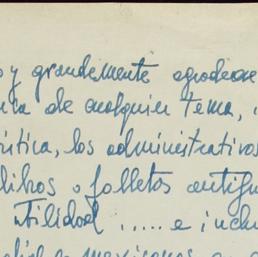 y grandemente agradece
de cualquier tema,
crítica, los administrativos
libros o folletos antigu
utilidad ..... e inclu
mexicanos